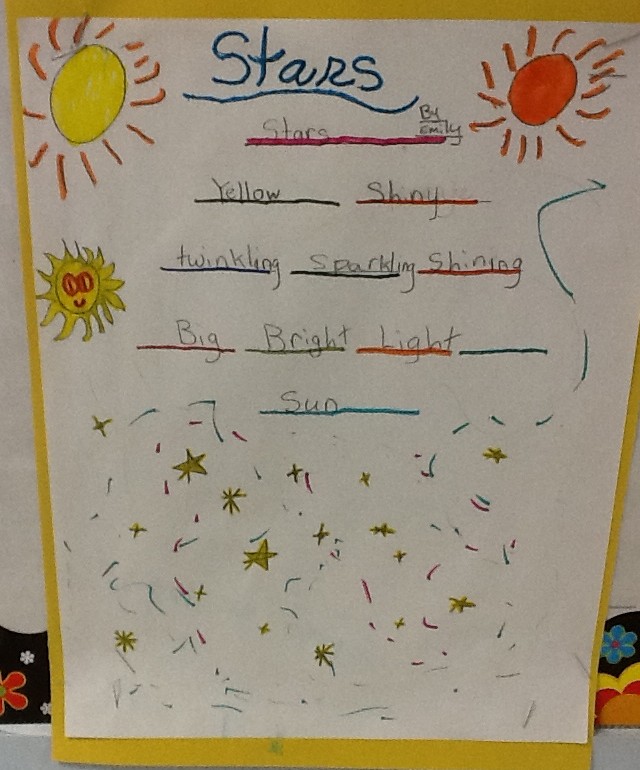 Stars
By
Emily
Stars
Yellow Shiny
twinkling Sparkling Shining
Big Bright Light
Sun